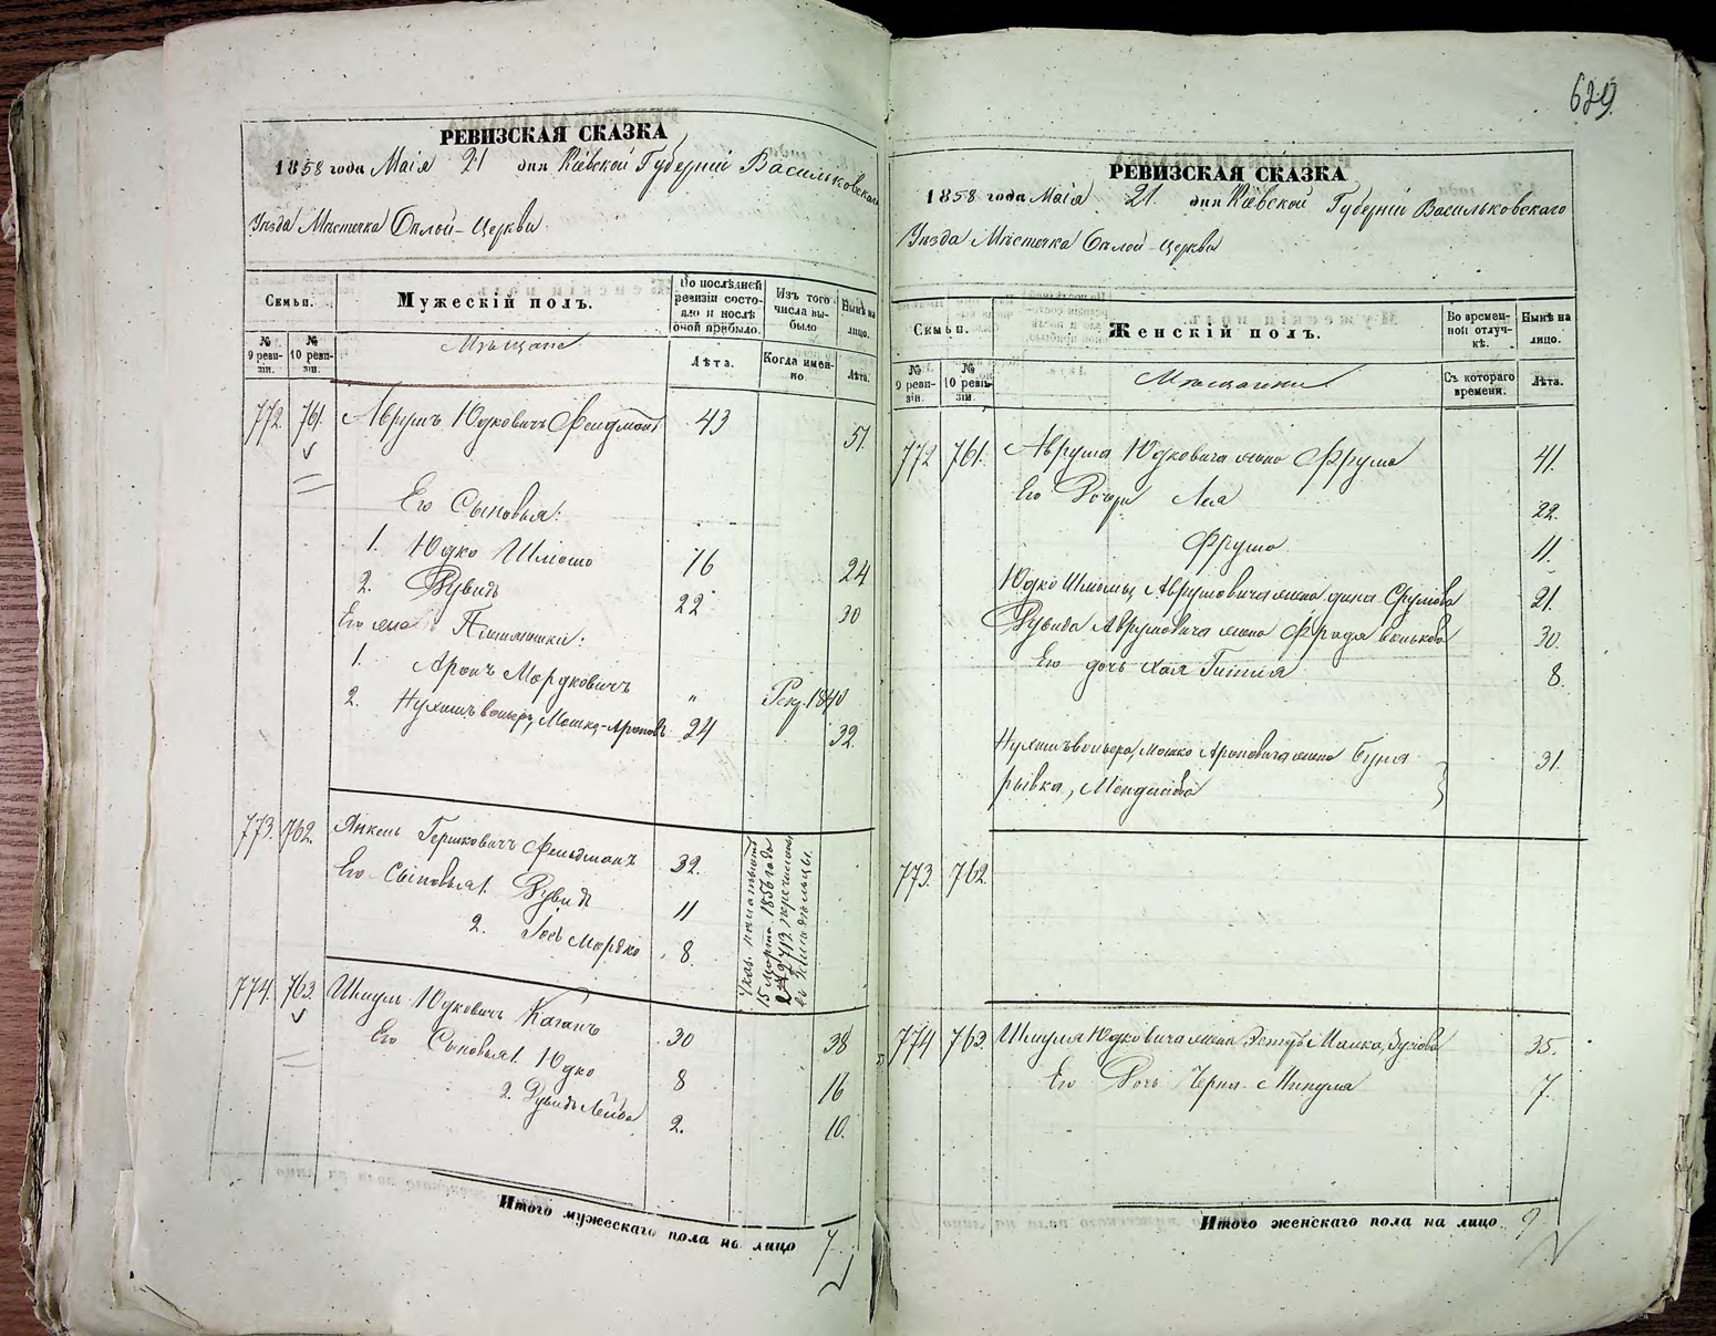 РЕВИЗСКАЯ СКАЗКА
1858 года Маія 21 дня Кіевской Губерніи Васильковскаго
Уѣзда Мѣстечка Бѣлой-Церкви
Семьи.
Мужескій полъ.
По послѣдней ревизіи состояло и послѣ оной прибыло.
Изъ того числа выбыло
Нынѣ на лицо.
№ 9 ревизіи.
№ 10 ревизіи.
Мѣщане
Лѣта.
Когда именно.
Лѣта.
772. 761. Аврумъ Юдковичъ Фельдманъ 43 51.
Его Сыновья:
1. Юдко Шлiомо 16 24
2. Дувидъ 22 30
Его Племянники:
1. Аронъ Мордковичъ " Рекр. 1840
2. Мошко-Ароновъ 24 32.
773. 762. Янкель Гершковичъ Фельдманъ 32.
Его Сыновья 1. Дувидъ 11
2. Іось Мордко 8.
Указ. палаты
15 Марта 1856 года
№ 2713 перечислены
въ Земледѣльцы.
774. 763. Шмуль Юдковичъ Каганъ 30 38
Его Сыновья 1. Юдко 8 16
2. Дувидъ Лейба 2. 10.
Итого мужескаго пола на лицо 7
629.
РЕВИЗСКАЯ СКАЗКА
1858 года Маія 21. дня Кіевской Губерніи Васильковскаго
Уѣзда Мѣстечка Бѣлой-Церкви
Семьи.
Женскій полъ.
Во временной отлучкѣ.
Нынѣ на лицо.
№ 9 ревизіи.
№ 10 ревизіи.
Мѣщанки
Съ котораго времени.
Лѣта.
772 761. Аврума Юдковича жена Фрума 41.
Его Дочери Лея 22.
Фрума 11.
Юдко Шлiомы Аврумовича жена Срулова 21.
Дувида Аврумовича жена Фрадя 30.
Его дочь Хая Гитля 8.
Мошко Ароновича жена Буня 31.
рывка,
773. 762.
774 763. Шмуля Юдковича жена Эстеръ Малка, 35.
Его Дочь Черня 7.
Итого женскаго пола на лицо 9